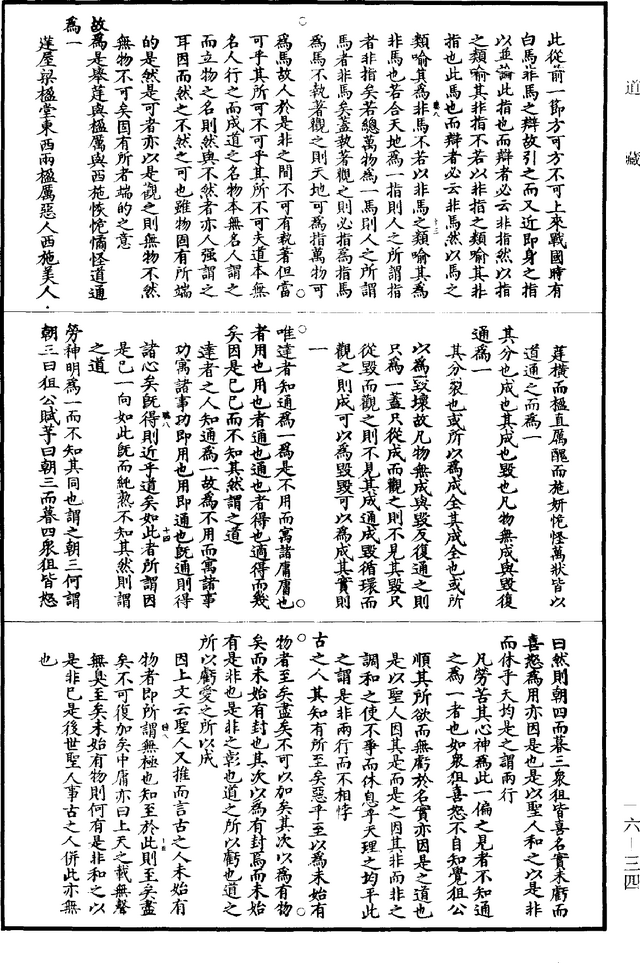 道藏
此從前一節方可方不可上來戰國時有
白馬非馬之辯故引之而又近即身之指
以並論此指也而辯者必云非指然以指
之類喻其非指不若以非指之類喻其非
指也此馬也而辯者必云非馬然以馬之
類喻其為非馬不若以非馬之類喻其為
非馬也若合天地為一指則人之所謂指
者非指矣若總萬物為一馬則人之所謂
馬者非馬矣蓋執著觀之則必指為指馬
為馬不執著觀之則天地可為指萬物可
為馬故人於是非之間不可有執著但當
可乎其所可不可乎其所不可夫道本無
名人行之而成道之名物本無名人謂之
而立物之名則然與不然者亦人强謂之
耳因而然之不然之可也雖物固有所端
的是然是可者亦以是觀之則無物不然
無物不可矣固有所者端的之意
故為是舉莛與楹厲與西施恢恑憰怪道通
為一
莛屋梁楹堂東西兩楹厲惡人西施美人
莛橫而楹直厲醜而施妍恑怪萬狀皆以
道通之而為一
其分也成也其成也毀也凡物無成與毀復
通為一
其分裂也或所以為成全其成全也或所
以為毀壞故凡物無成與毀反復通之則
只為一蓋只從成而觀之則不見其毀只
從毀而觀之則不見其成通成毀循環而
觀之則成可以為毀毀可以為成其實則
一
唯達者知通為一為是不用而寓諸庸庸也
者用也用也者通也通也者得也適得而幾
矣因是已已而不知其然謂之道
達者之人知通為一故為不用而寓諸事
功寓諸事功即用也用即通也既通則得
諸心矣既得則近乎道矣如此者所謂因
是已一向如此既而純熟不知其然則謂
之道
勞神明為一而不知其同也謂之朝三何謂
朝三曰狙公賦芧曰朝三而暮四衆狙皆怒
曰然則朝四而暮三衆狙皆喜名實未虧而
喜怒為用亦因是也是以聖人和之以是非
而休乎天均是之謂兩行
凡勞苦其心神為此一偏之見者不知通
之為一者也如衆狙喜怒不自知覺狙公
順其所欲而無虧於名實亦因是之道也
是以聖人因其是而是之因其非而非之
調和之使不爭而休息乎天理之均平此
之謂是非兩行而不相悖
古之人其知有所至矣惡乎至以為未始有
物者至矣盡矣不可以加矣其次以為有物
矣而未始有封也其次以為有封焉而未始
有是非也是非之彰也道之所以虧也道之
所以虧愛之所以成
因上文云聖人又推而言古之人未始有
物者即所謂無極也知至於此則至矣盡
矣不可復加矣中庸亦曰上天之載無聲
無臭至矣未始有物則何有是非和之以
是非已是後世聖人事古之人併此亦無
也
一六—三四